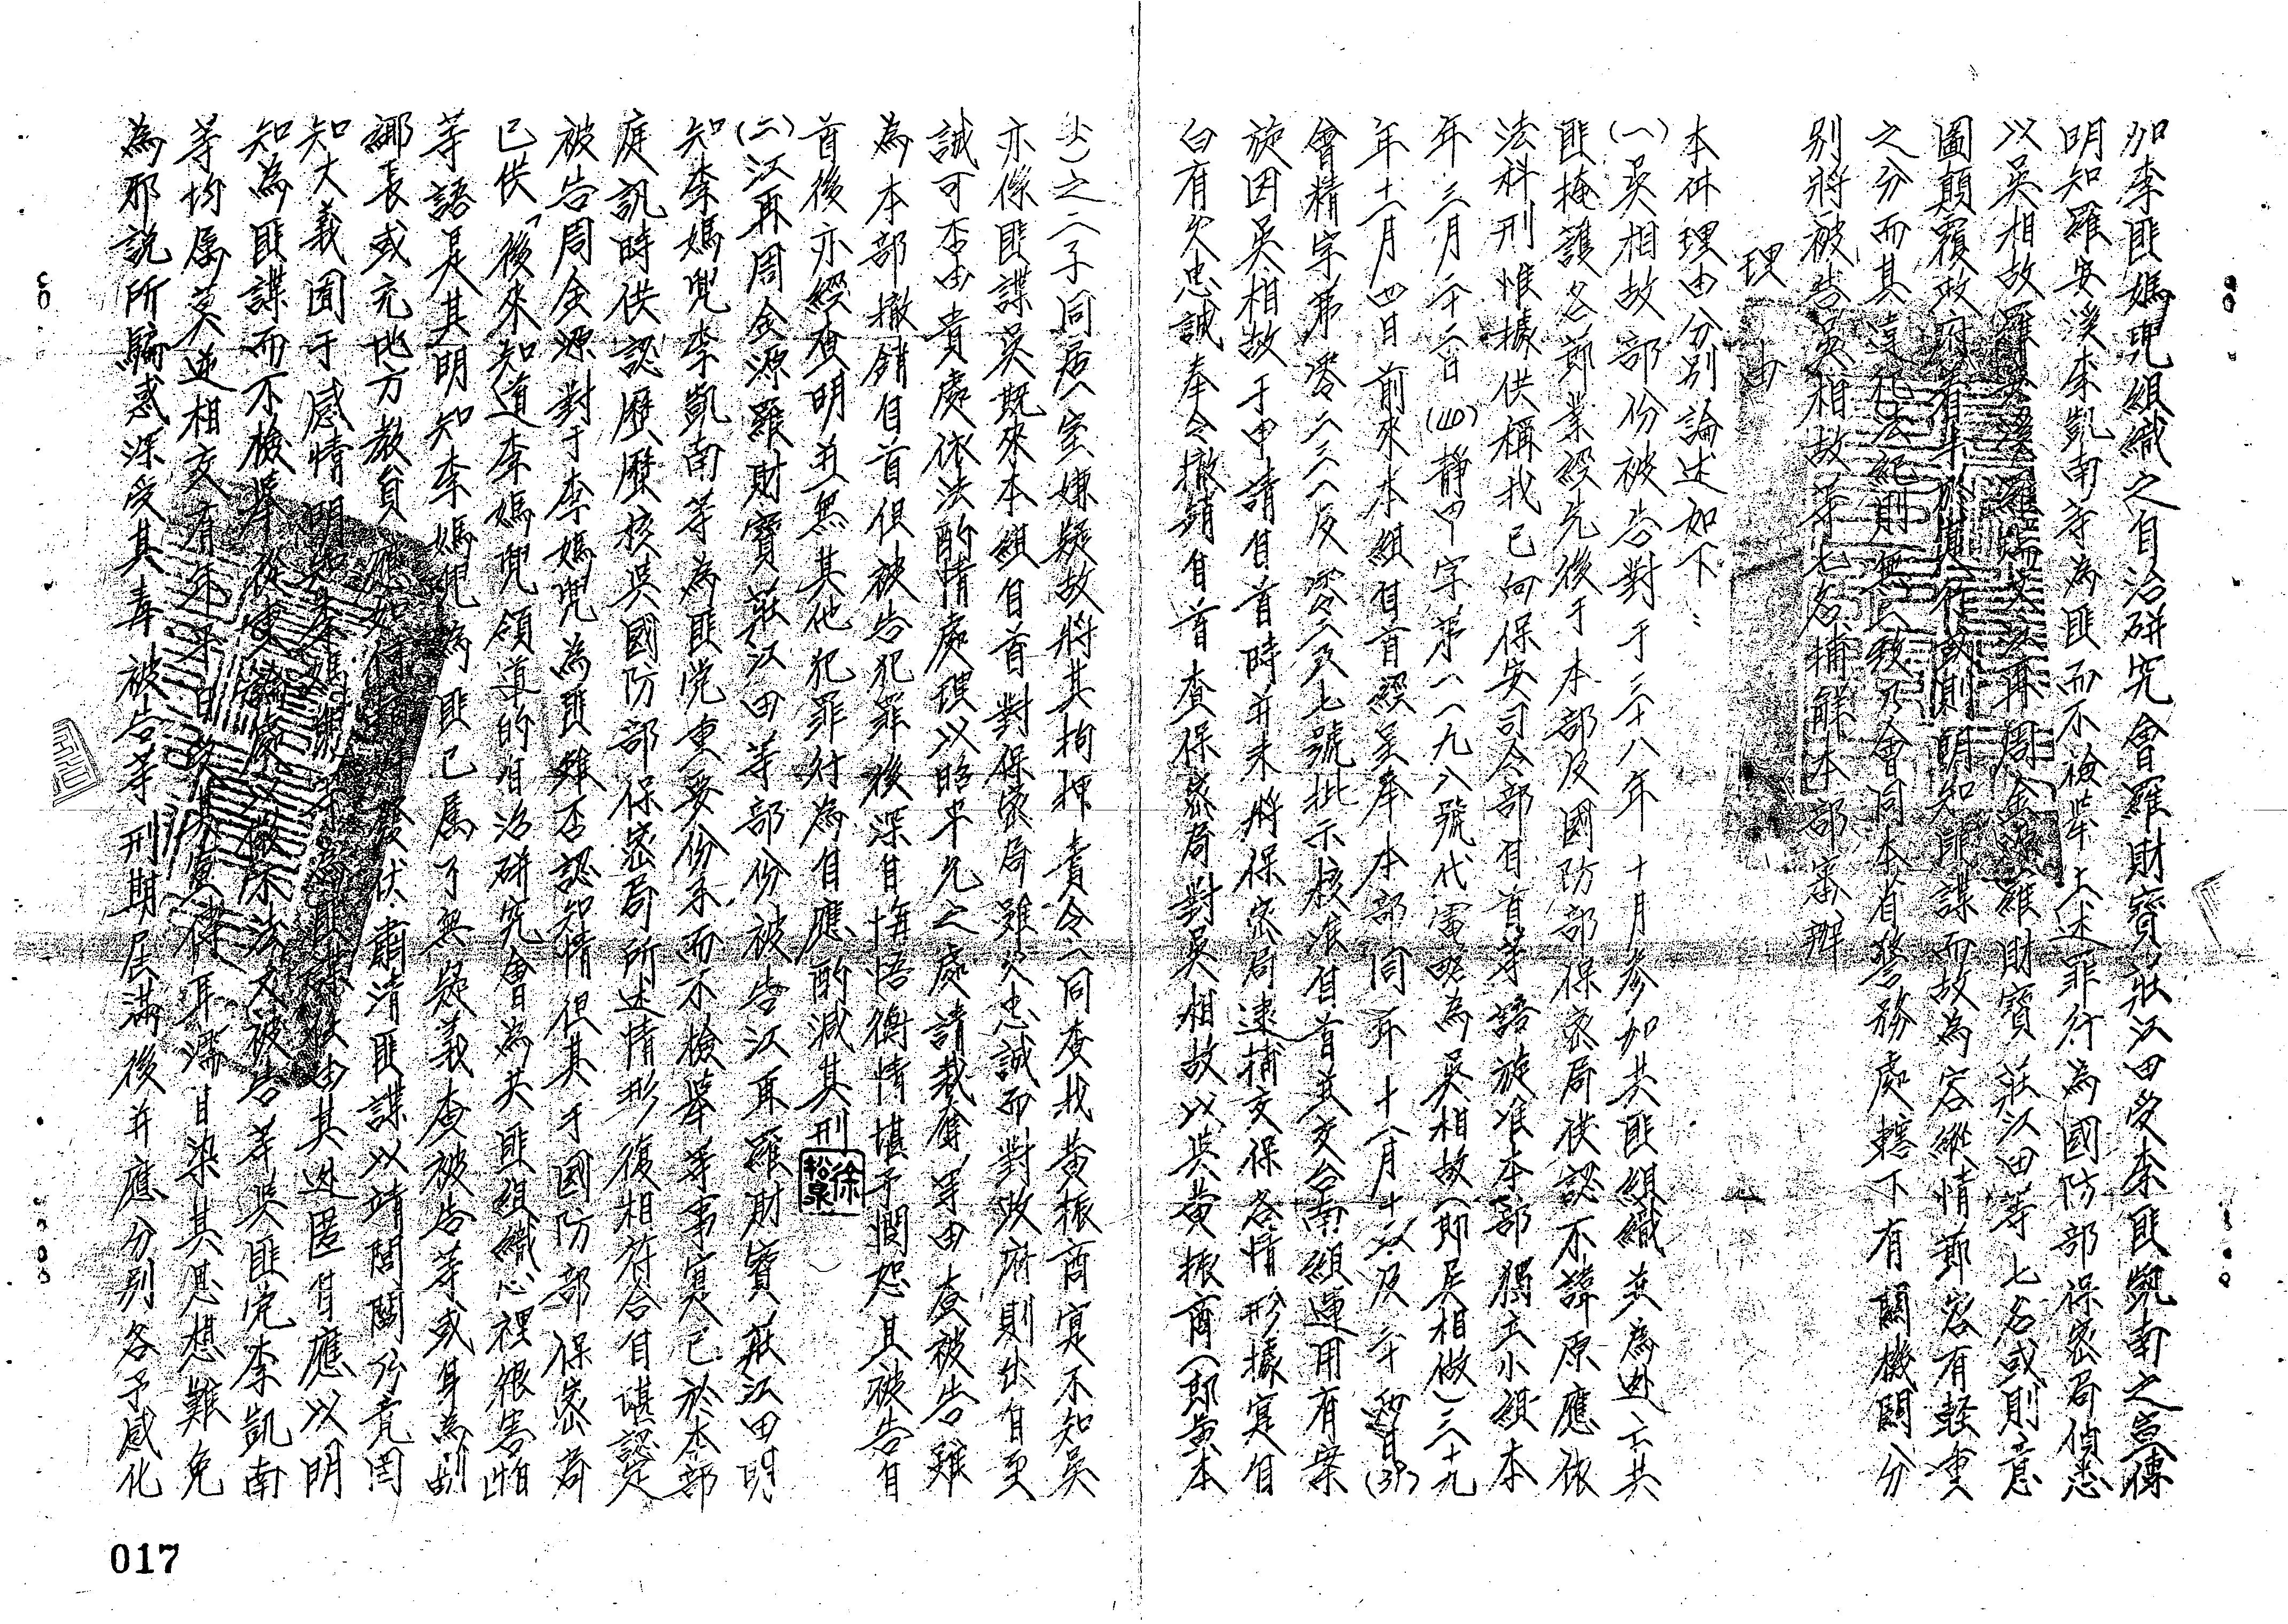 加李匪媽兜組織之自治研究會羅財寶莊江田受李匪凱南之宣傳
明知羅安溪李凱南等為匪而不檢舉上述罪行為國防部保密局偵悉
以吳相故羅安溪羅端文江再周金源羅財寶莊江田等七名或則意
圖顛覆政府着手於進行或則明知匪諜而故為容縱情節容有輕重
之分而其違犯法紀則無 會同本省警務處轄下有關機關分
別將被告吳相故等七名捕解本部審辦
理由
本件理由分別論述如下：
(一)吳相故部份被告對于三十八年十月參加共匪組織並為逃亡共
匪掩護各節業經先後于本部及國防部保密局供認不諱原應依
法科刑惟據供稱我已向保安司令部自首等語旋准本部獨立小組本
年三月二十二日(40)靜甲字第一一九八號代電略為吳相故(即吳相做)三十九
年十一月四日前來本組自首經呈奉本部同年十一月十 及二十四日(39)
會精字第零二三一及零二 七號批示核准自首並交台南組運用有案
旋因吳相故于申請自首時并未將保密局逮捕交保各情形據實自
白有欠忠誠奉令撤銷自首查保密局對吳相故以與黃振商(即黃本
)之二子同居一室嫌疑故將其拘押責令一同查找黃振商實不知吳
亦係匪諜吳既來本組自首對保密局雖欠忠誠而對政府則出自至
誠可否由貴處依法酌情處理以昭平允之處請裁奪等由查被告雖
為本部撤銷自首但被告犯罪後深自悔悟衡情堪予憫恕且被告自
首後亦經查明並無其他犯罪行為自應酌減其刑
徐松泉
(二)江再周金源羅財寶莊江田等部份被告江再羅財寶莊江田明
知李媽兜李凱南等為匪党重要份子而不檢舉等事實已於本部
庭訊時供認歷歷核與國防部保密局所述情形復相符合自堪認定
被告周金源對于李媽兜為匪雖否認知情但其于國防部保密局
已供「後來知道李媽兜領導的自治研究會為共匪組織心裡很害怕」
等語是其明知李媽兜為匪已屬了無疑義查被告等或身為副
鄉長或充地方教員應如何 發伏肅清匪諜以靖閭閻乃竟罔
知大義囿于感情明知李媽兜等為匪諜任由其逃匿自應以明
知為匪諜而不檢舉從 論處以儆 法又被告等與匪党李凱南
等均屬莫逆相交有年平日 耳濡目染其思想難免
為邪說所騙惑深受其毒被告等刑期屆滿後并應分別各予感化
017